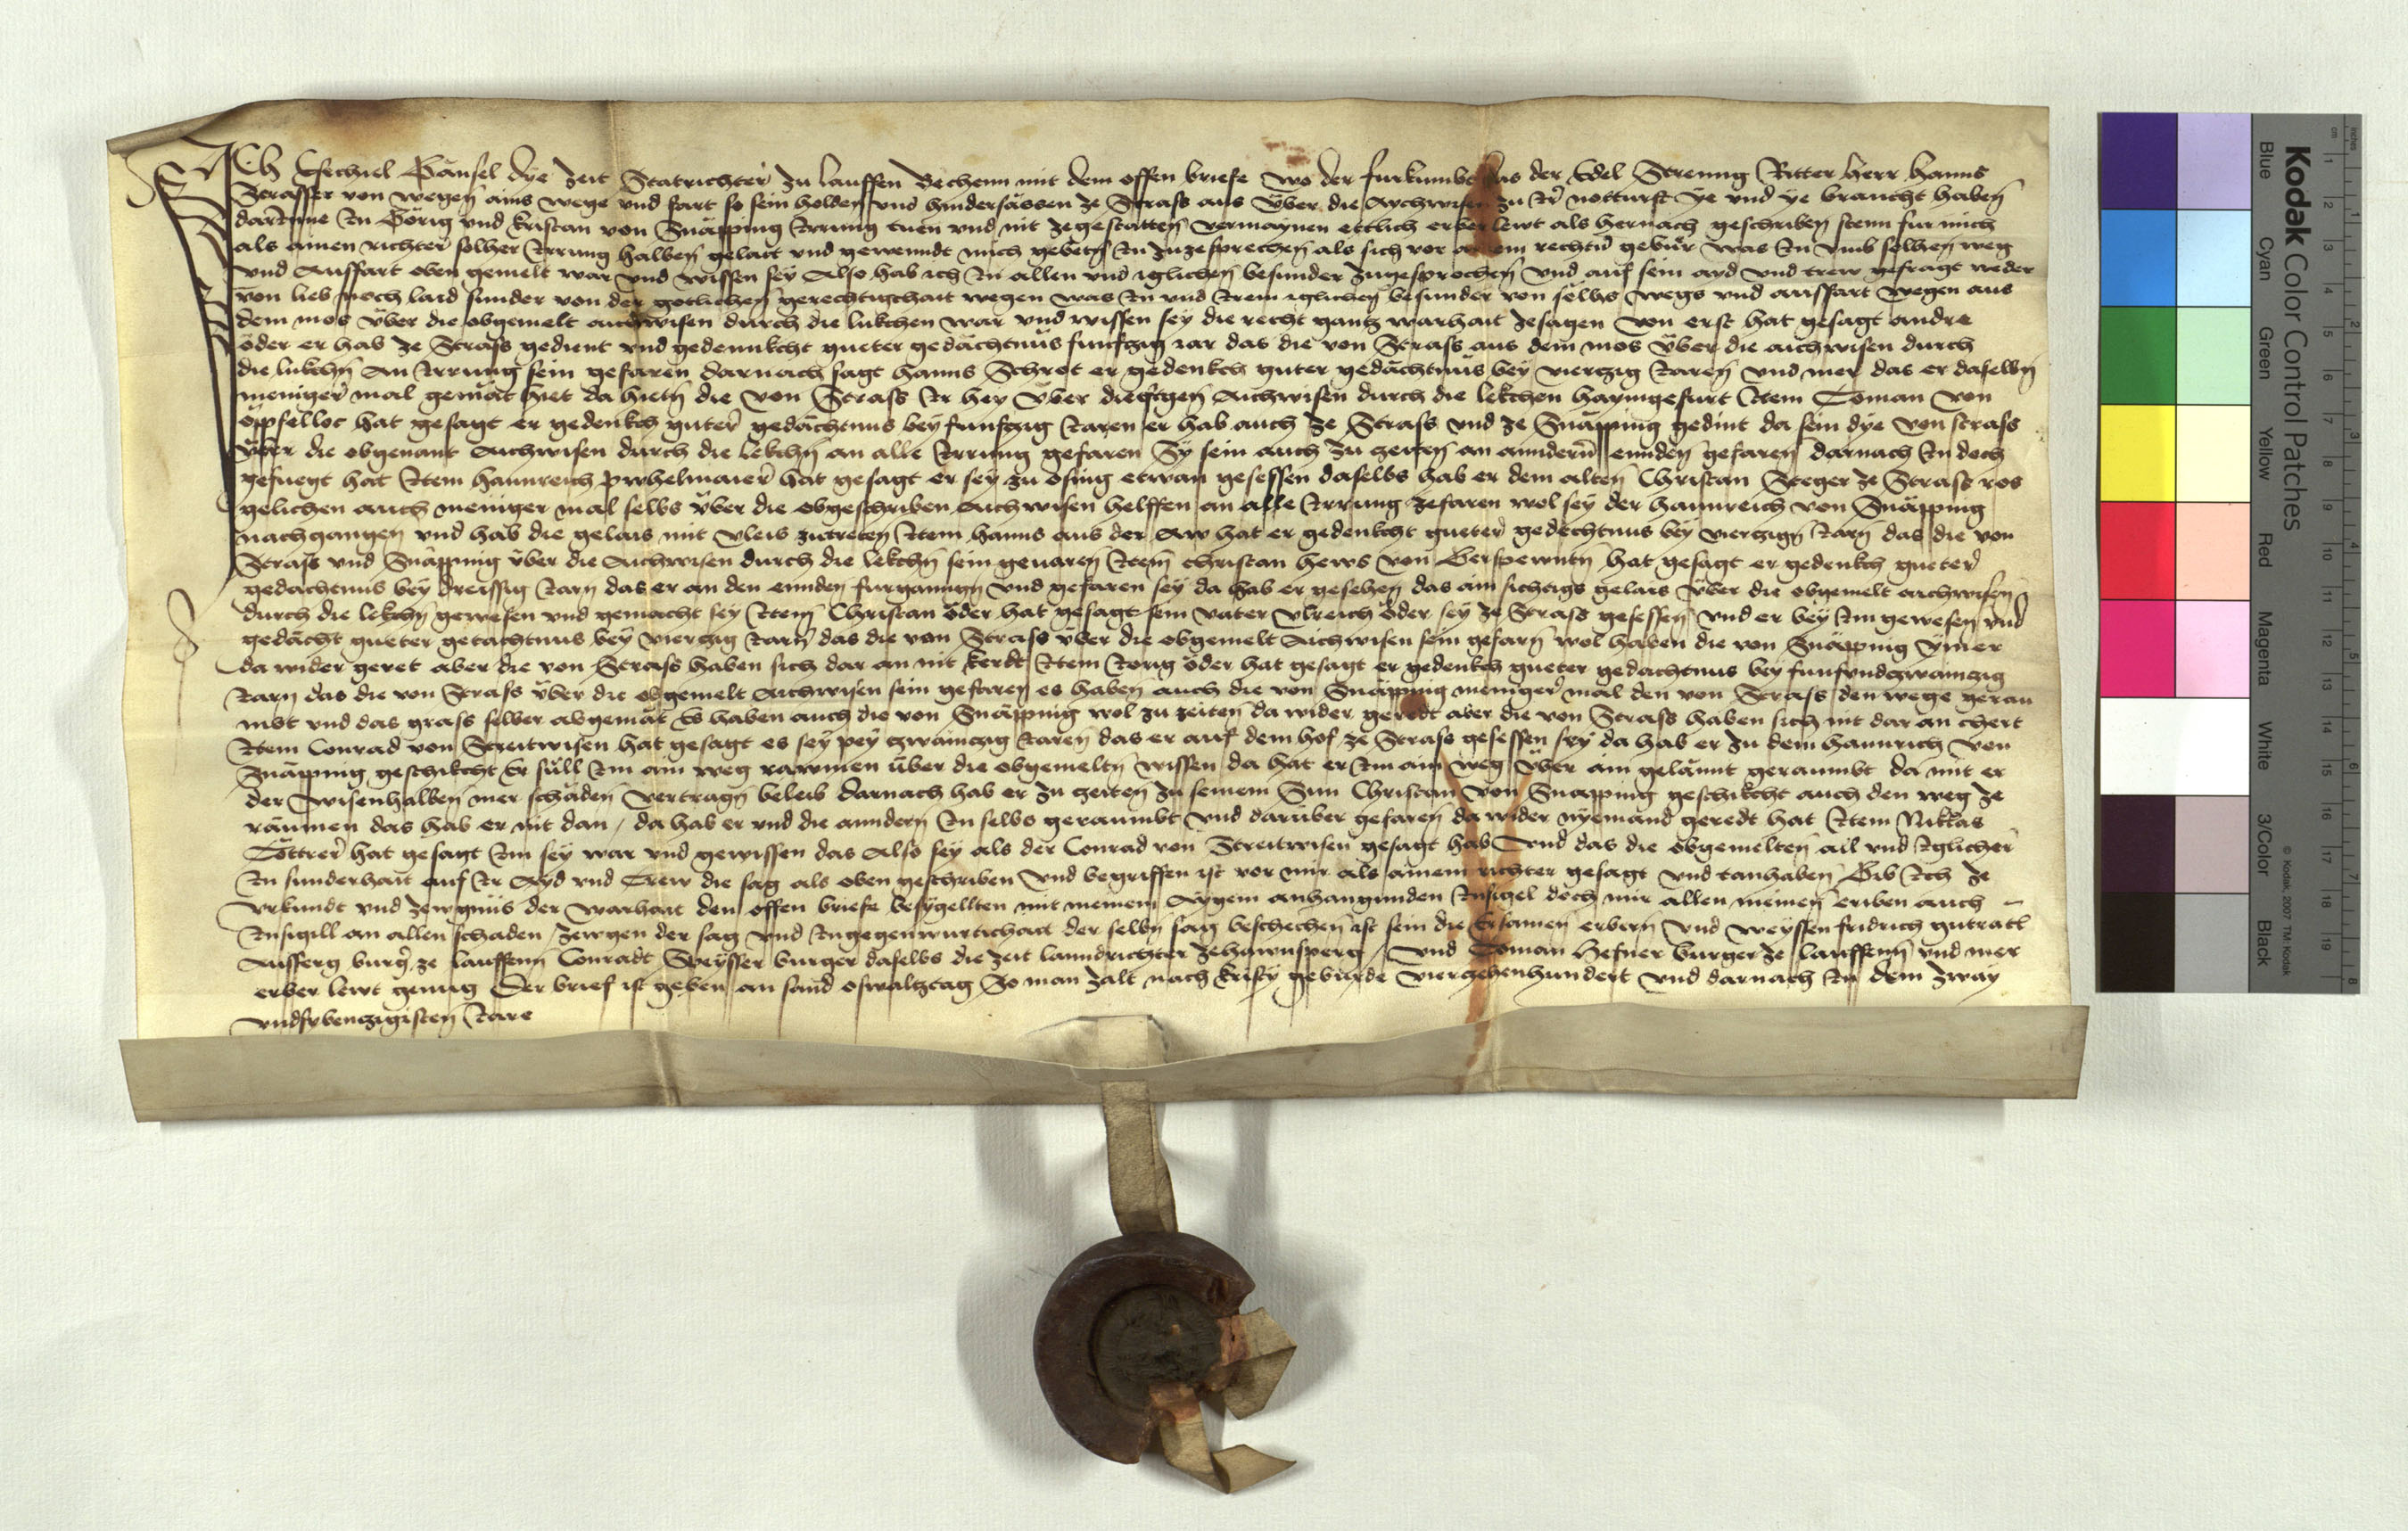 Ich Ezechiel Gänsel dye zeit Statrichter zu Lauffen Bechenn mit dem offen briefe wo der furkumbt das der Edel Streng Ritter herr hanns
Strasser von wegen ains wegs und fart so sein holden und hindersässen ze Strass aus Über die Aichwisen zu Irer notturft ye und ye braucht haben
darInne In Görig und Kristan von Snäpping Irrung tuen und nit zegestatten vermaynen ettlich erber lewt als hernach geschriben stenn fur mich
als ainen richter solher Irrung halben gelait und geweundt mich gebeten In zuzesprechen als sich vor ainem rechten gebür was In umb solhen weg
und Ausfart oben gemelt war und wissen sey Also hab ich In allen und iglichen besunder zugesprochen und auf sein aid und trew gefragt weder
von lieb noch laid sunder von der gotlichen gerechtigchait wegen was In und Irem iglichen besunder von selbs wegs und ausfart wegen aus
dem mos über die obgemelt aichwisen durch die lukchen war und wissen sey die recht gantz warhait zesagen von erst hat gesagt andre
öder er hab ze Strass gedient und gedennkcht gueter gedächtnüs funfzig iar das die von Strass aus dem mos über die aichwisen durch
die lukchn An Irrung sein gefaren darnach sagt hanns Schrot er gedenkch guter gedächtnüs bey vierzig Iaren und mer das er daselbn
meniger mal gemät hiet da hietn die von Strass Ir hey über die Aichwisen durch die lekchen hayngefurt Item Toman von
öpfelloc hat gesagt er gedenkch guter gedächtnus bey funfzig Iaren er hab auch ze Strass und ze Snäpping gedint da sein dye von strass
über die obgenant Aichwisen durch die lekchn an alle Irrung gefaren Sy sein auch zu zeiten an anndern ennden gefaren darnach In doch
gefuegt hat Item haunreich pwhelmaier hat gesagt er sey zu ofing etwan gesessen daselbs hab er dem alten Christan Steger ze Strass ros
gelichen auch meniger mal selbs über die obgeschriben Aichwisen helffen an alle Irrung zefaren wol sey der haunreich von Snäpping
nachgangen und hab die gelais mit vleis zutreten Item hanns aus der Aw hat er gedenkcht gueter gedechtnus bey vierzign Iarn das die von
Strass und Snäpping über die Aichwisen durch die lekchn sein geuaren Item christan hews von Gerspewntn hat gesagt er gedenkch gueter
gedachtnus bey dreissig Iarn das er an den ennden furganngn und gefaren sey da hab er gesehen das ain sichtigs gelais über die obgemelt aichwisen
durch die lekchn gewesen und gemacht sey Item Christan öder hat gesagt sein vater ulreich öder sey ze Strass gesessen und er bey Im gewesen und
gedächt gueter getachtnus bey vierzig Iarn das die von Strass über die obgemelt Aichwisen sein gefarn wol haben die von Snäpping ymer
da wider geret aber die von Strass haben sich dar an nit kerdt Item Iorig öder hat gesagt er gedenkch gueter gedachtnus bey funfundzwainzig
Iarn das die von Strass über die obgemelt Aichwisen sein gefaren es haben auch die von Snäpping meniger mal den von Strass den wege gerau
mbt und das grass selber abgemät Es haben auch die von Snäpping wol zu zeiten da wider geredt aber die von Strass haben sich nit dar an chert
Item Conrad von Streitwisen hat gesagt es sey pey zwainzig Iaren das er auf dem hof ze Strass gesessen sey da hab er zu dem haunrich von
Snäpping geschikcht Er süll Im ain weg rawmen über die obgemeltn wissen da hat er Im ain weg über ain gelännt geraumbt da mit er
der wisenhalben mer schäden vertragn beleib darnach hab er zu zeiten zu seinem Sun Christan von Snapping geschikcht auch den weg ze
räumen das hab er nit dan / da hab er und die anndern In selbs geraumbt und darüber gefaren da wider nyemand geredt hat Item Niklas
Töttrer hat gesagt Im sey war und gewissen das Also sey als der Conrad von Streitwisen gesagt hab und das die obgemelten all und Iglicher
In sunderhait auf Ir Ayd und Trew die sag als oben geschriben und begriffen ist vor mir als ainem richter gesagt und tanhaben Gib Ich ze
urkundt und zewgnüs der warhait den offen briefe besygellten mit meinem Aygem anhangunden Insigel doch mir allen meinen eriben auch
Insigill an allen schaden / zewgen der sag und Ingegenwurtichait der selbn sag beschechen ist sein die Ersamen erbern und weyssen fridrich gutratl
Ausserg burger ze lauffenn Conradt Speysser burger daselbs die zeit lanndrichter zehawnsperg / und Toman Hefner burger ze lauffenn und mer
erber lewt genug Der brief ist geben an sand oswaltztag So man zalt nach Kristy geburde vierzehenhundert und darnach In dem zway
undsybenzigisten Iare